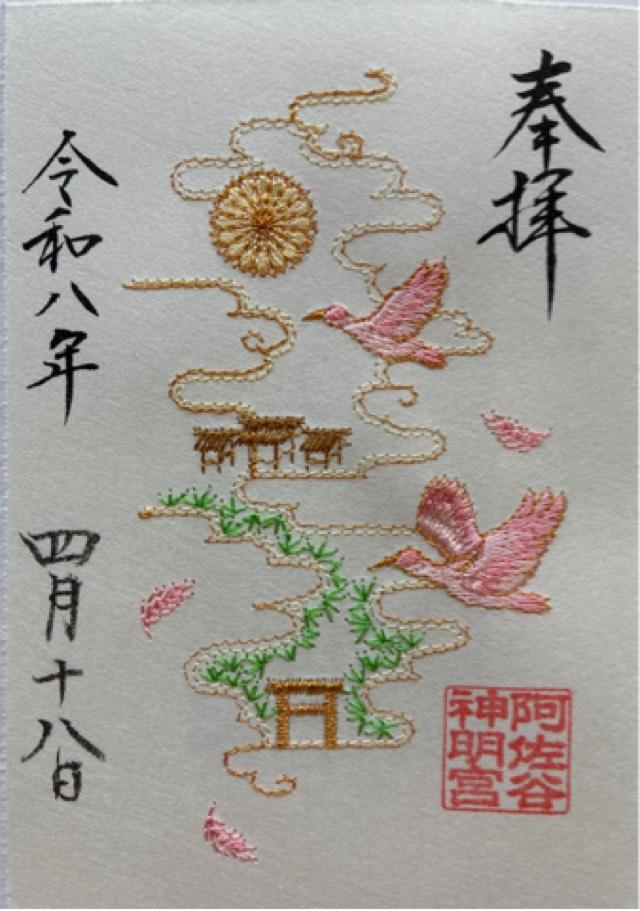 奉拝
阿佐谷
神明宮
令和八年
四月十八日